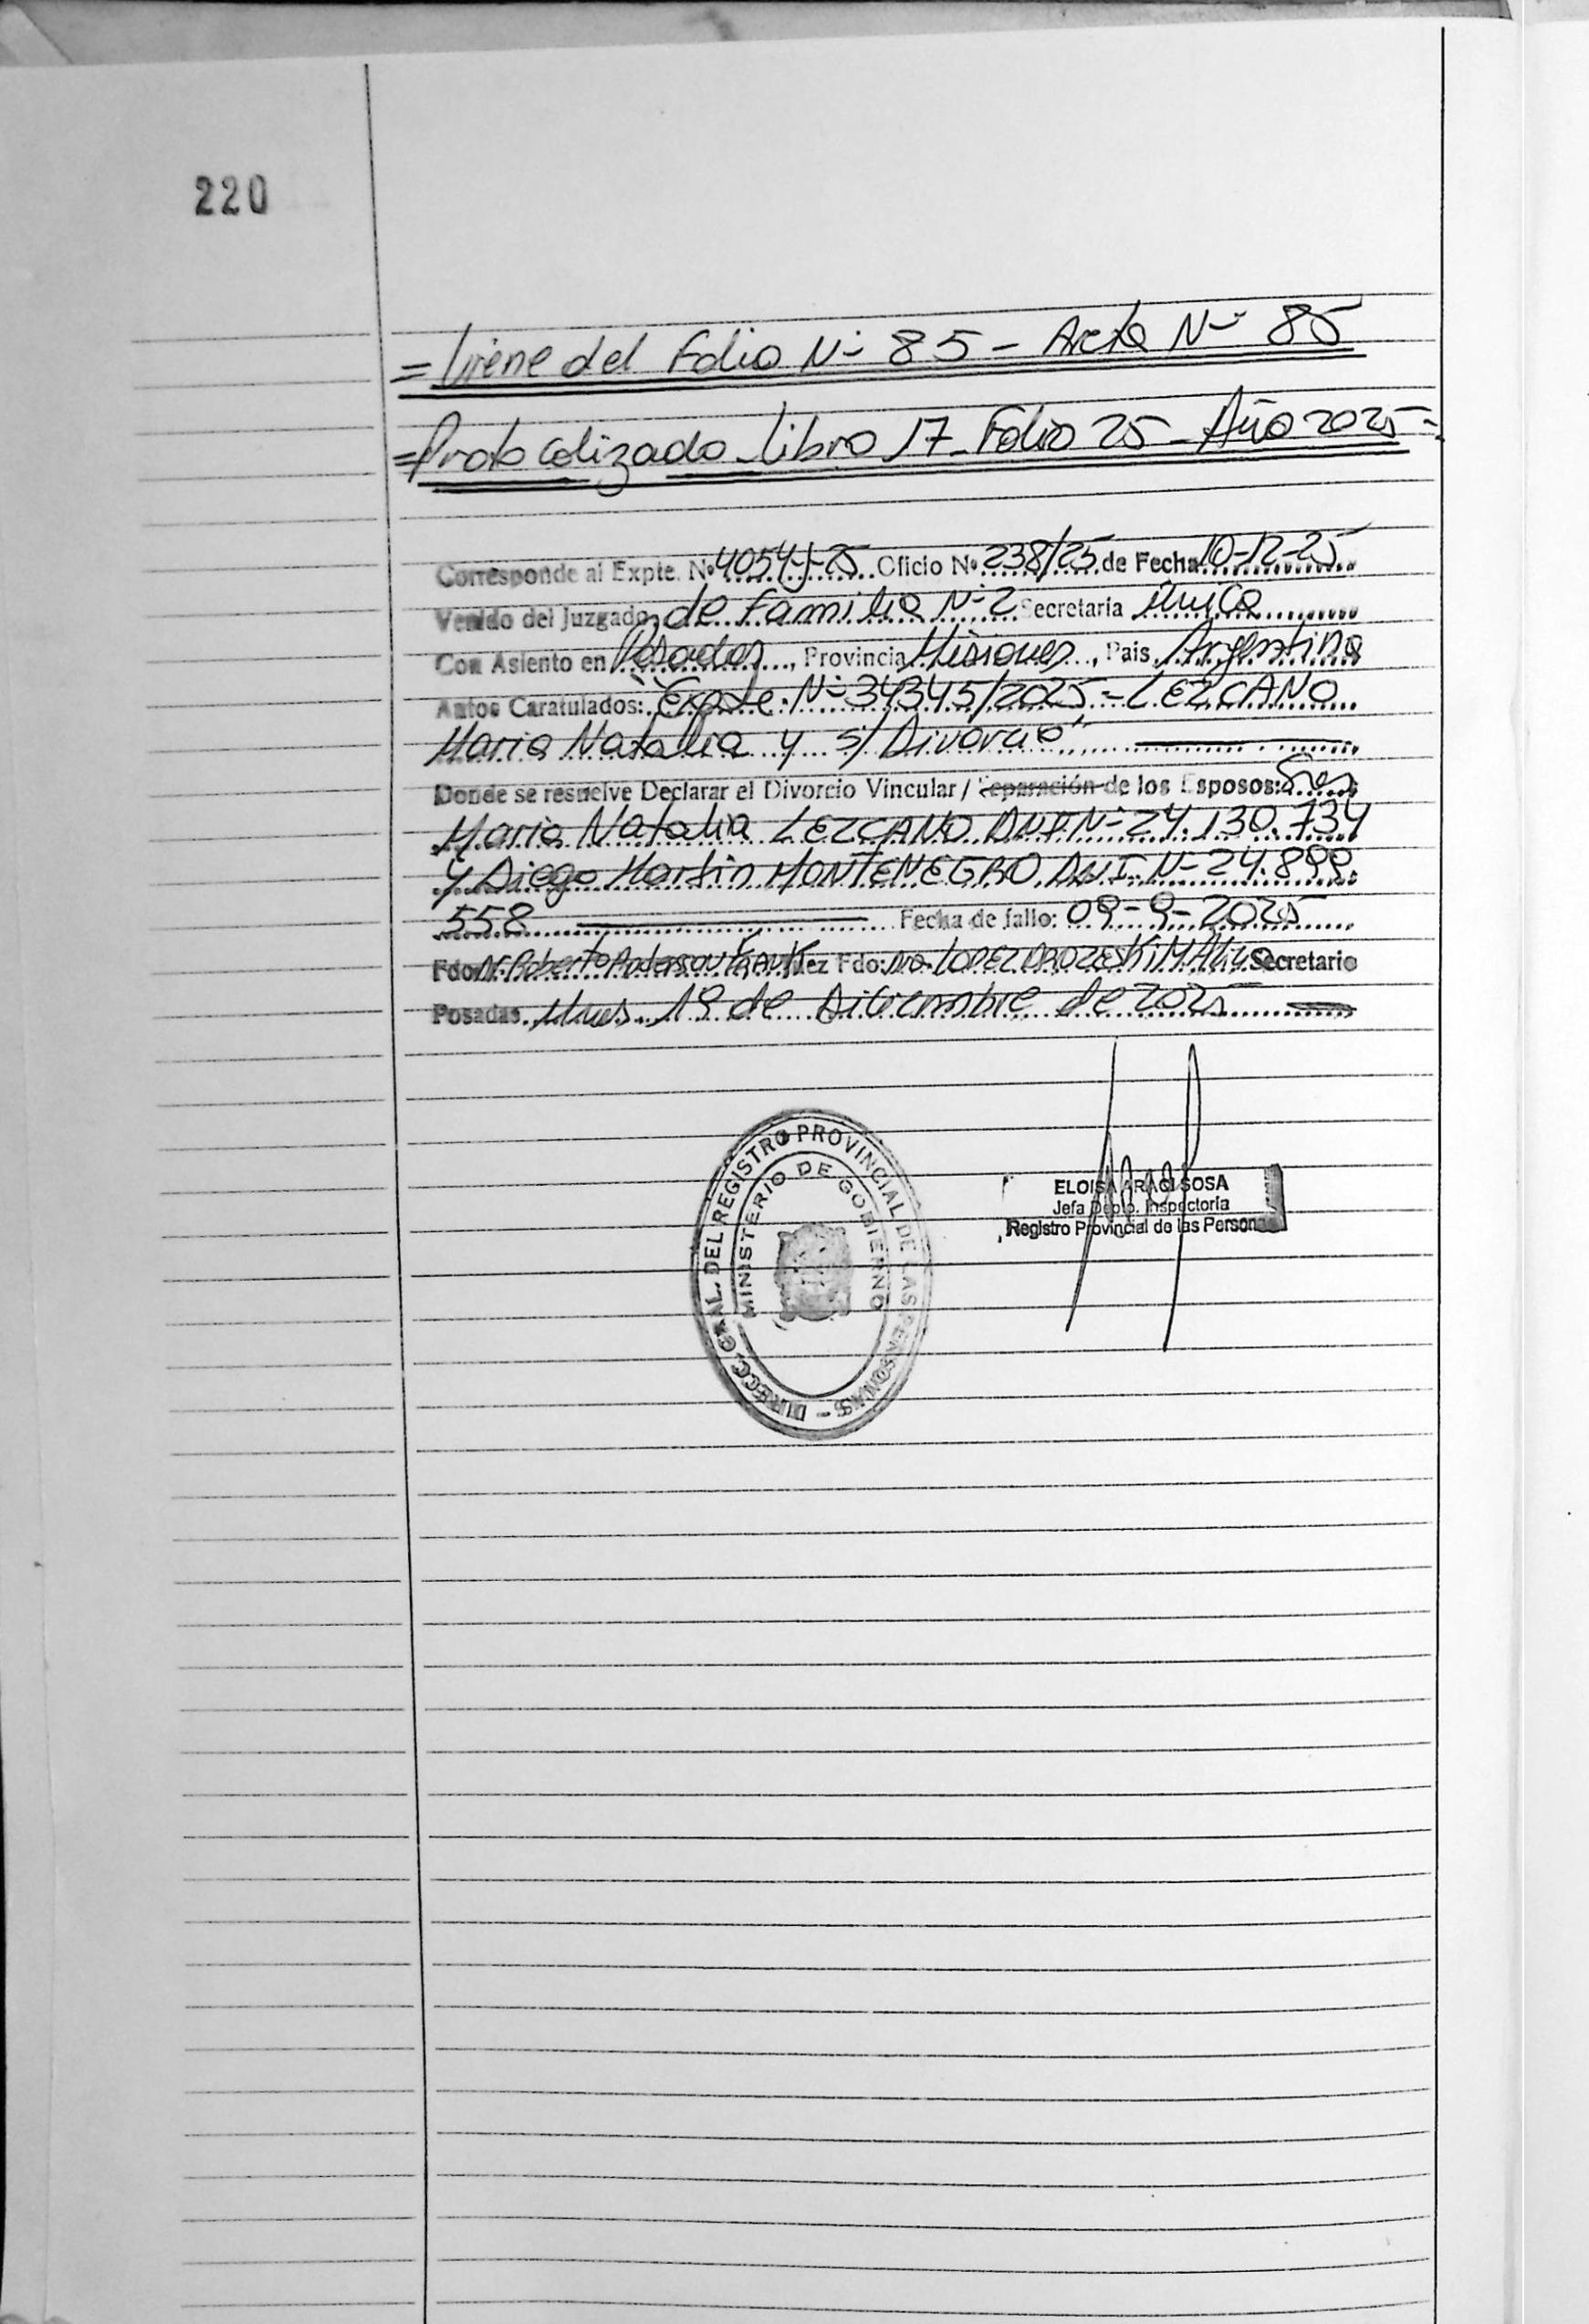 220
= Viene del Folio Nº 85 - Acta Nº 85
= Protocolizado - Libro 17 - Folio 25 - Año 2025 =
Corresponde al Expte. Nº 4054-J-25 Oficio Nº 238/25 de Fecha 10-12-25
Venido del Juzgado de Familia Nº 2 Secretaría única
Con Asiento en Posadas, Provincia Misiones, Pais Argentina
Autos Caratulados: "Expte. Nº 34345/2025 - LEZCANO
Maria Natalia y s/ Divorcio"
Donde se resuelve Declarar el Divorcio Vincular / Separación de los Esposos: Sres
Maria Natalia LEZCANO DNI Nº 24.130.734
y Diego Martin MONTENEGRO DNI Nº 24.899.
558 Fecha de fallo: 09-9-2025
Fdo: Roberto Anderson Juez Fdo: LOPEZ Secretario
Posadas, Mnes. 19 de Diciembre de 2025
DIRECC. GRAL. DEL REGISTRO PROVINCIAL DE LAS PERSONAS -
MINISTERIO DE GOBIERNO
ELOISA SOSA
Jefa Depto. Inspectoría
Registro Provincial de las Personas